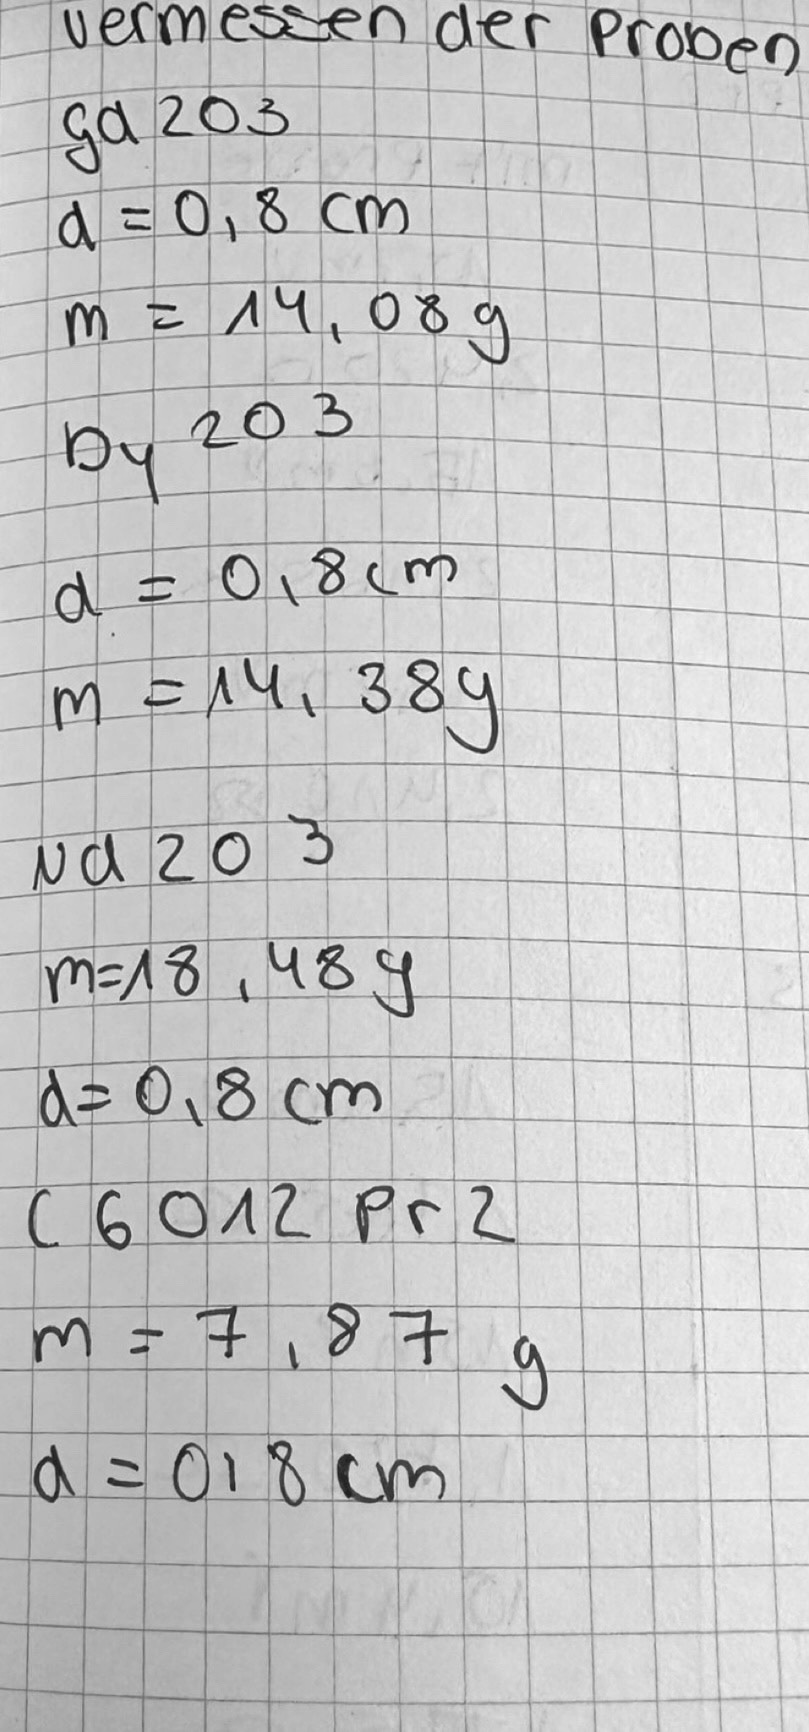 vermessen der Proben
gd 203
d = 0,8 cm
m = 14,08g
Dy 203
d = 0,8cm
m = 14,38g
Nd 203
m=18,48g
d= 0,8 cm
C6O12 Pr2
m = 7,87 g
d = 0,8 cm